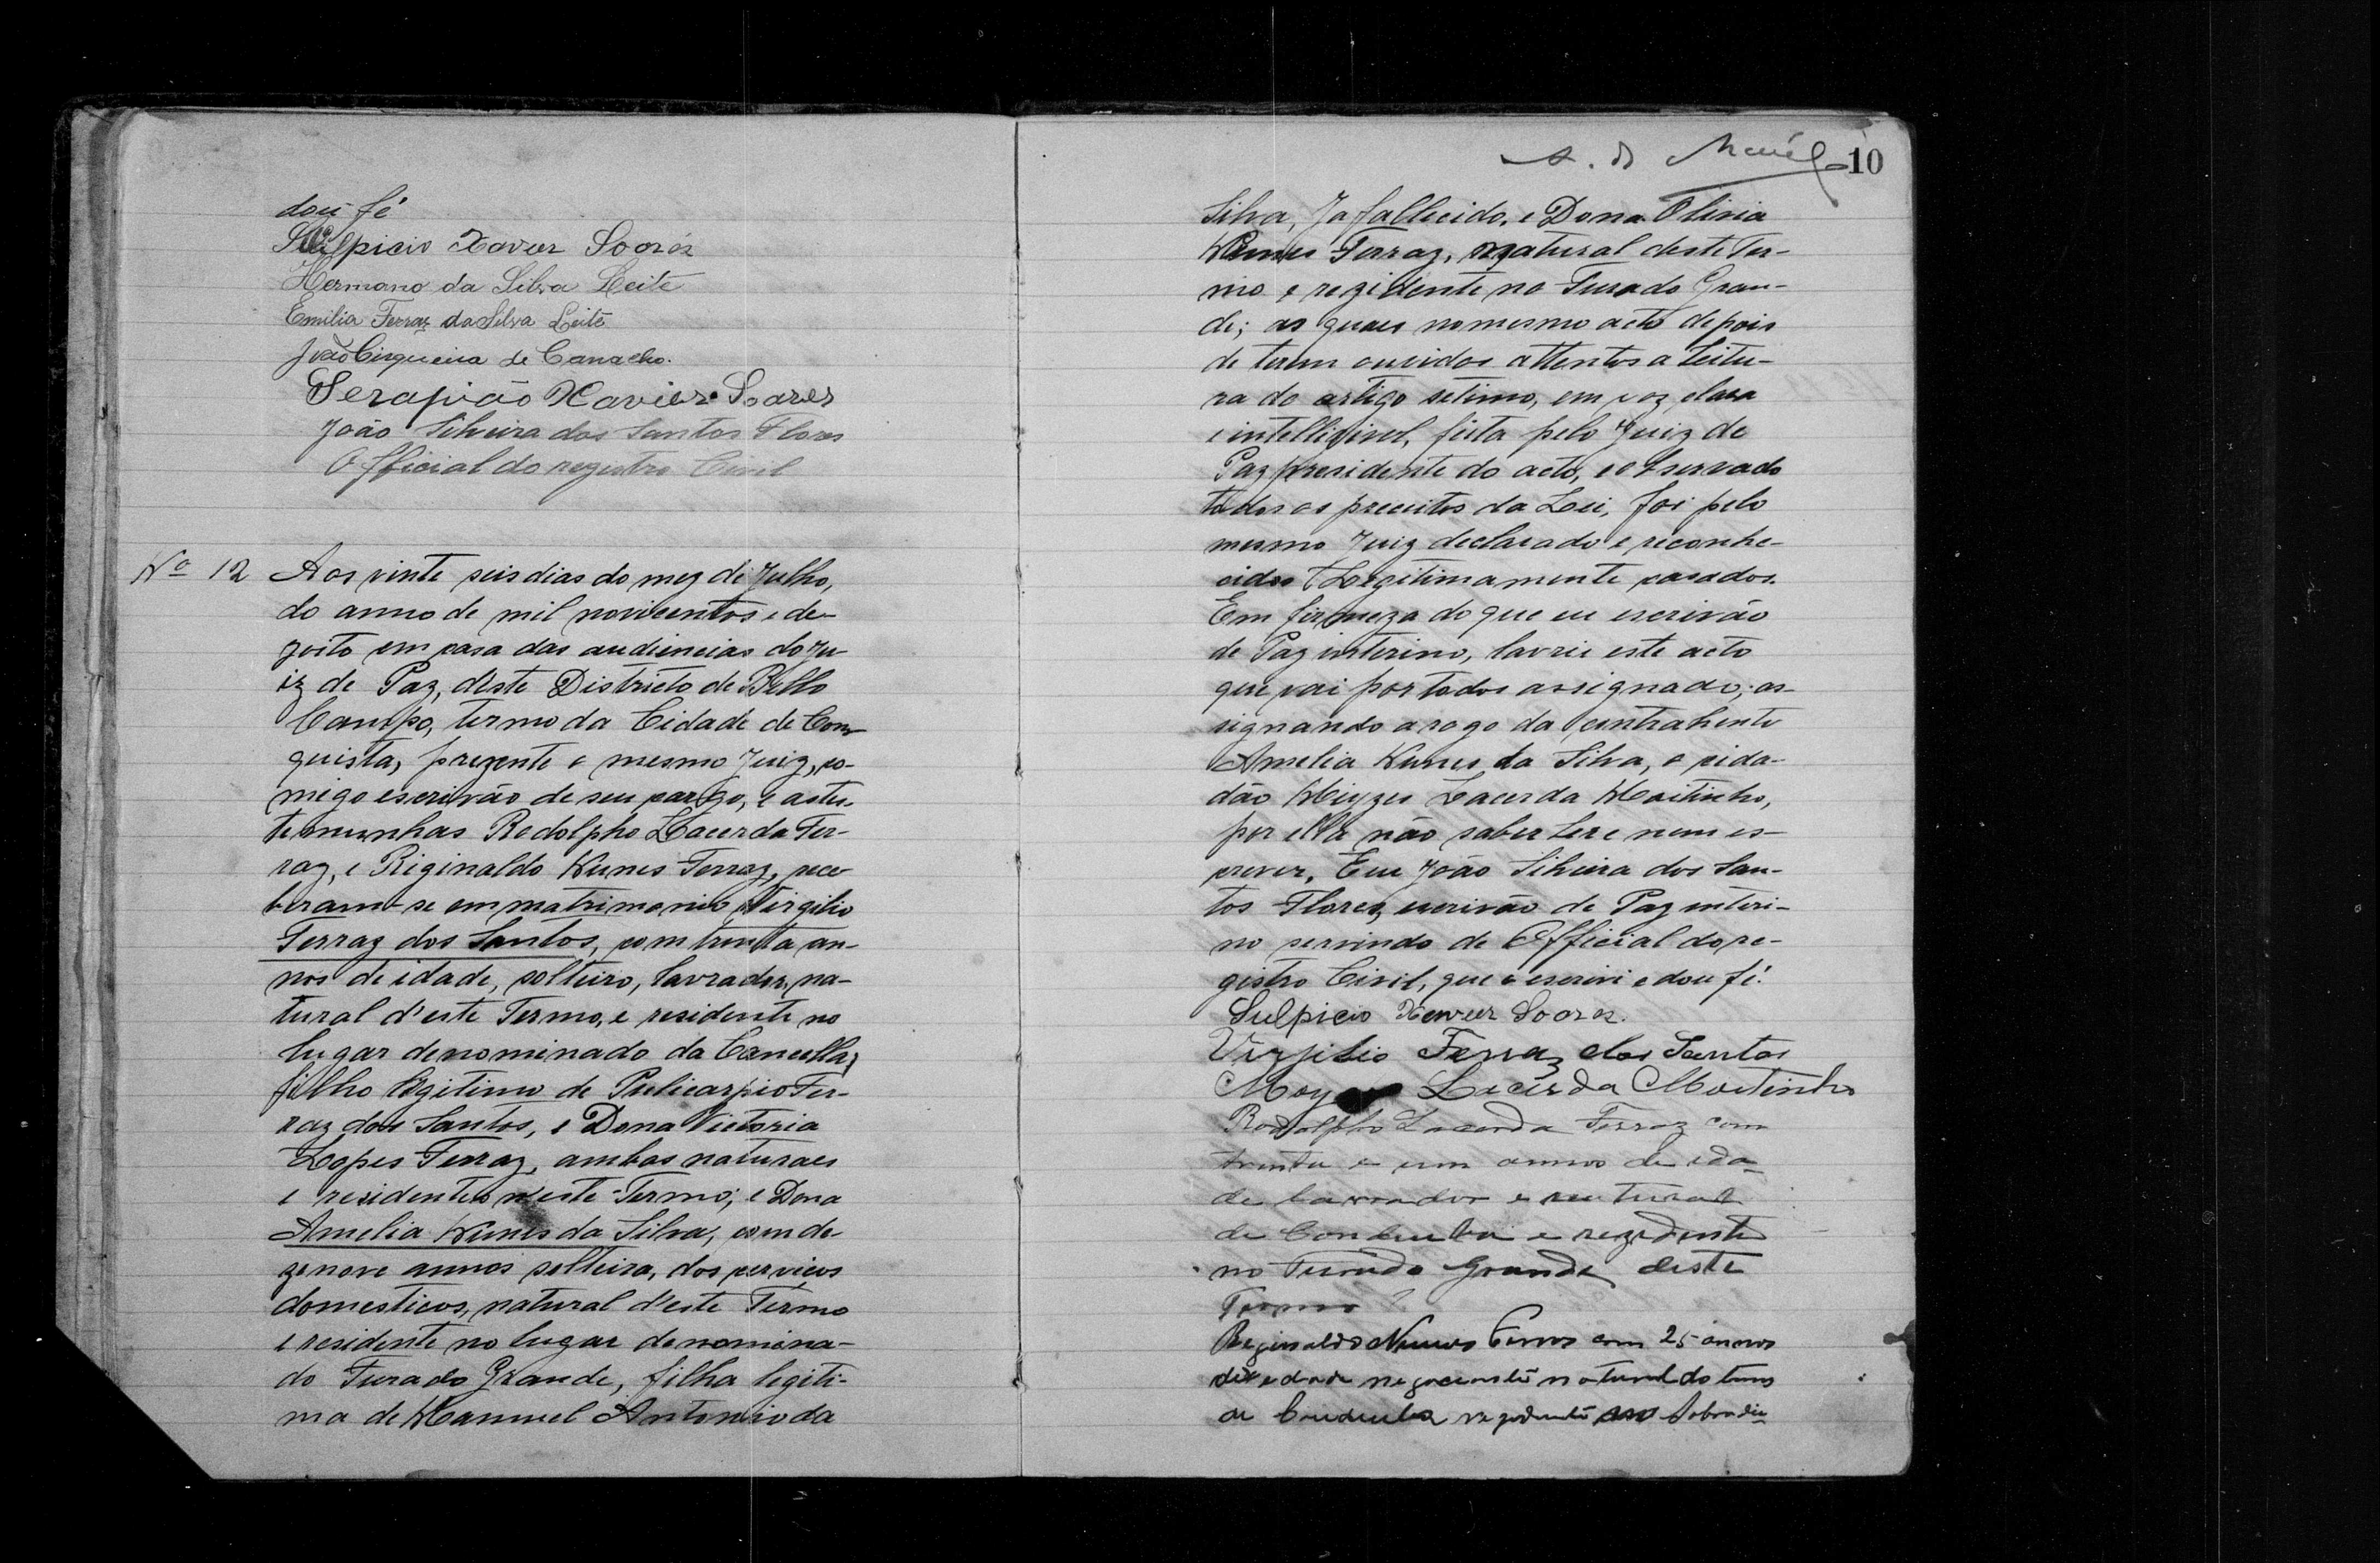 dou fé
Sulpicio Xavier Soares
Hermano da Silva Leite
Emilia Ferraz da Silva Leite
João Cirqueira de Camacho.
Serapião Xavier Soares
João Silveira dos Santos Flores
Official do registro Civil
Nº 12 Aos vinte seis dias do mez de Julho,
do anno de mil novicentos e de-
zoito em casa das audiencias do Ju
iz de Paz, d'este Districto de Bello
Campo, termo da Cidade de Con
quista, prezente o mesmo Juiz, co-
migo escrivão de seu cargo, e astes-
temunhas Rodolpho Lacerda Fer-
raz, e Riginaldo Nunes Ferraz, rece-
beram-se em matrimonio, Virgilio
Ferraz dos Santos, com trinta an-
nos de idade, solteiro, lavrador, na-
tural d'este Termo, e residente no
lugar denominado da Cancella,
filho legitimo de Pulicarpio Fer-
raz dos Santos, e Dona Victoria
Lopes Ferraz, ambos naturaes
e residentes n'este Termo; e Dona
Amelia Nunes da Silva, com de-
zenove annos solteira, dos serviços
domesticos, natural d'este Termo
e residente no lugar denomina-
do Furado Grande, filha legiti-
ma de Manuel Antonio da
10
Silva, Ja fallecido, e Dona Olivia
Nunes Ferraz, natural deste Ter-
mo e rezidente no Furado Gran-
de; as quaes no mesmo acto depois
de terem ouvidos attentos a leitu-
ra do artigo setimo, em voz clara
e intellivivel, feita pelo Juiz de
Paz presidente do acto, e observado
todos os preceitos da Lei, foi pelo
mesmo Juiz declarado e reconhe-
cidos Legitimamente casados.
Em firmeza do que eu escrivão
de Paz interino, lavrei este acto
que vai por todos assignado; as-
signando a rogo da contrahente
Amelia Nunes da Silva, o cida-
dão Miyzes Lacerda Moitinho,
por ella não saber lere nem es-
crever. Eu João Silveira dos San-
tos Flores, escrivão de Paz interi-
no servindo de Official do re-
gistro Civil, que o escrivi e dou fé.
Sulpicio Xavier Soares.
Virgilio Ferraz dos Santos
Lacerda Moitinho
Rodolpho Lacerda Ferraz com
trinta e um annos de ida-
de lavrador e natural
de Condeuba e rezidente
no Furado Grande deste
Termo
Reginaldo Nunes Ferraz com 25 annos
de edade negociante natural do termo
de Condeuba rezidente